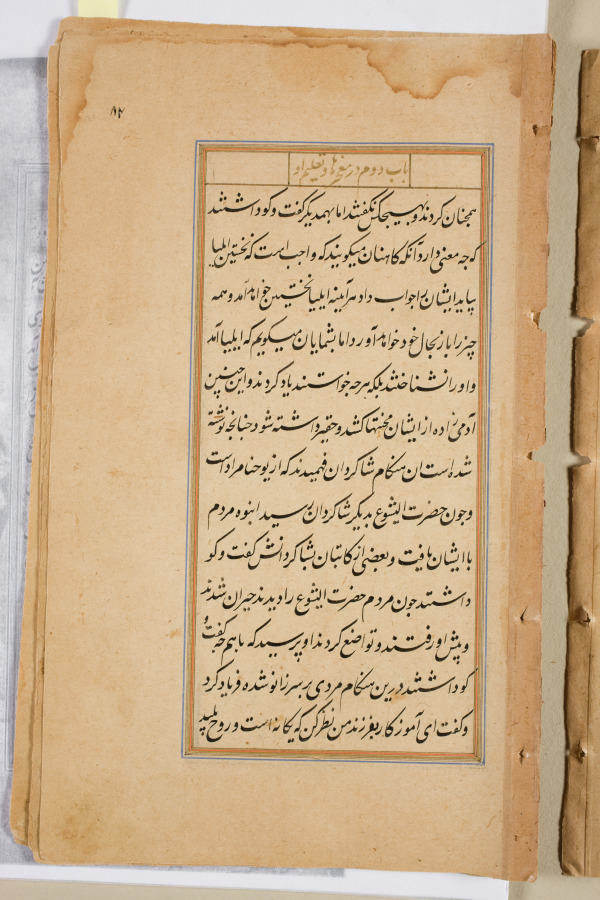 ۸۲
باب دوم در معجزها و تعلیم او
همجنان کردند و بهیجکس نکفتند اما بهمدیکر کفت و کو داشتند
که جه معنی دارد آنکه کاهنان میکویند که واجب است که نخستین ایلیا
بیاید ایشان را جواب داد هرآینه ایلیا نخستین خواهد آمد و همه
جیز را باز بحال خود خواهد آورد اما بشمایان میکویم که ایلیا آمد
و او را نشناختند بلکه هرجه خواستند باد کردند و این جنین
آدمی زاده از ایشان محنتها کشد و حقیر داشته شود جنانجه نوشته
شده است آن هنکام شاکردان فهمیدند که از یوحنا مراد است
و جون حضرت ایشوع بدیکر شاکردان رسید انبوه مردم
با ایشان یافت و بعضی از کاتبان بشاکردانش کفت و کو
داشتند جون مردم حضرت ایشوع را دیدند حیران شدند
و پیش او رفتند و تواضع کردند او پرسید که باهم جه کفت و
کو داشتند درین هنکام مردی بر سر زانو شده فریاد کرد
و کفت ای آموزکار بفرزند من نظر کن که یکانه است و روح پلید